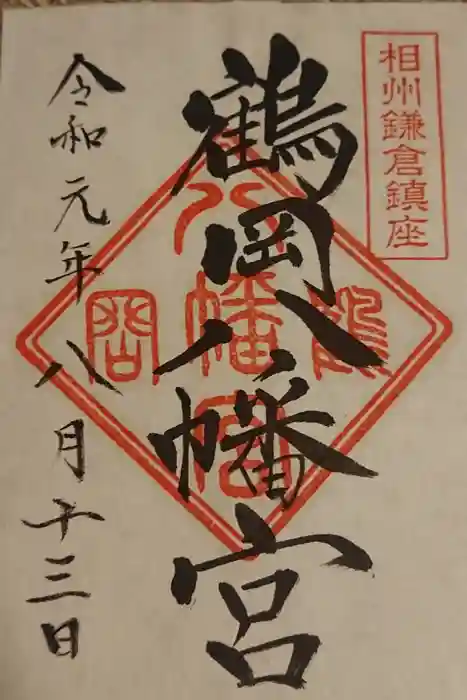 相州鎌倉鎮座
鶴岡八幡宮
鶴
岡
八
幡
宮
令和元年八月十三日